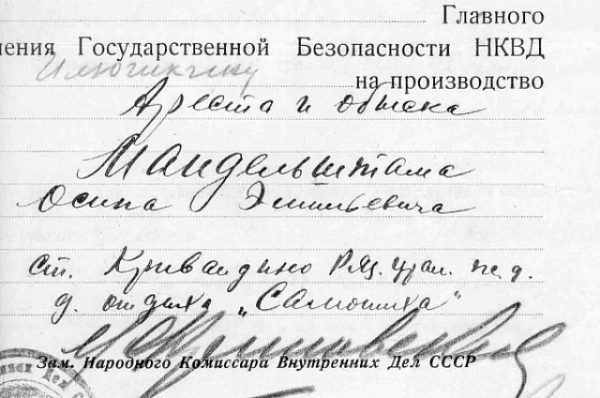 Главного
ения Государственной Безопасности НКВД
на производство
Ареста и обыска
Мандельштама
Осипа Эмильевича
ст. Кривандино Ряз. Урал. ж. д.
д. отдыха „Саматиха“
Зам. Народного Комиссара Внутренних Дел СССР